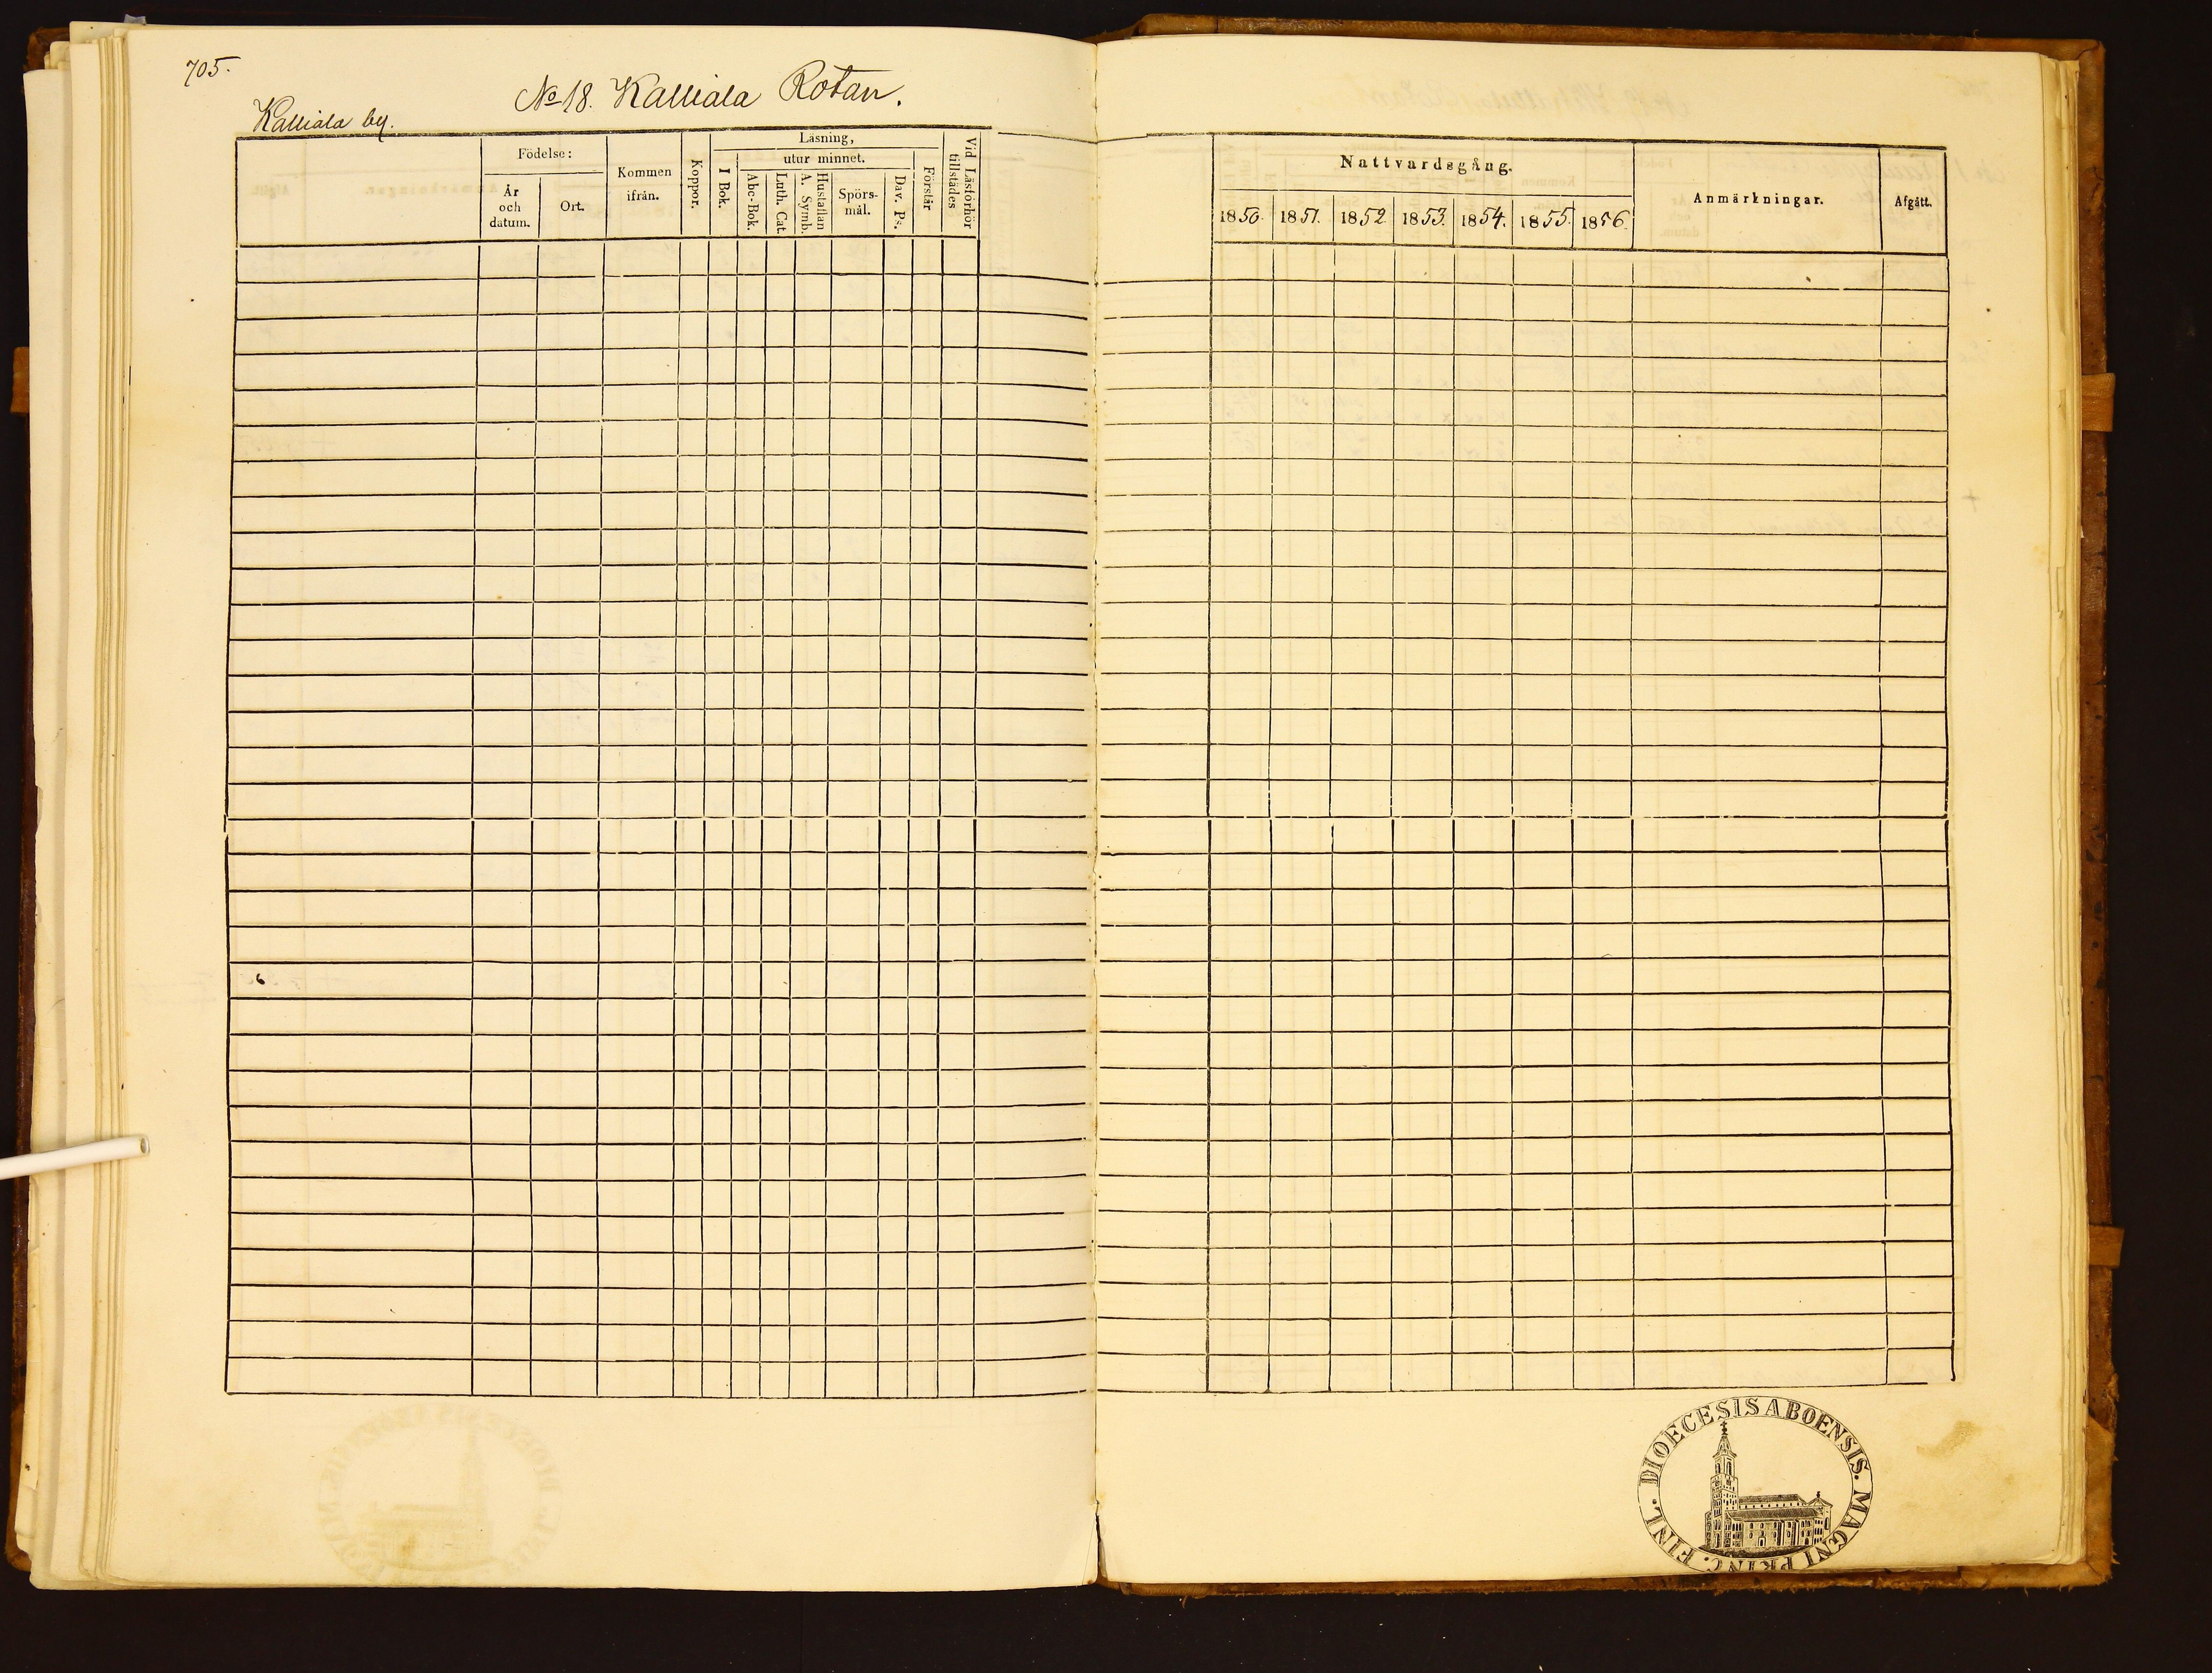 705.
No 18. Kalliala Rotan.
Kalliala by.
Födelse:
År och datum.
Ort.
Kommen ifrån.
Koppor.
Läsning,
I Bok.
utur minnet.
Abc-Bok.
Luth. Cat.
Hustaflan A. Symb.
Spörs-mål.
Dav. Ps.
Förstår
Vid Läsförhör tillstädes
Nattvardsgång.
1850. 1851. 1852 1853. 1854. 1855. 1856.
Anmärkningar.
Afgått.
DIOECESIS ABOENSIS. MAGNI PRINC. FINL.